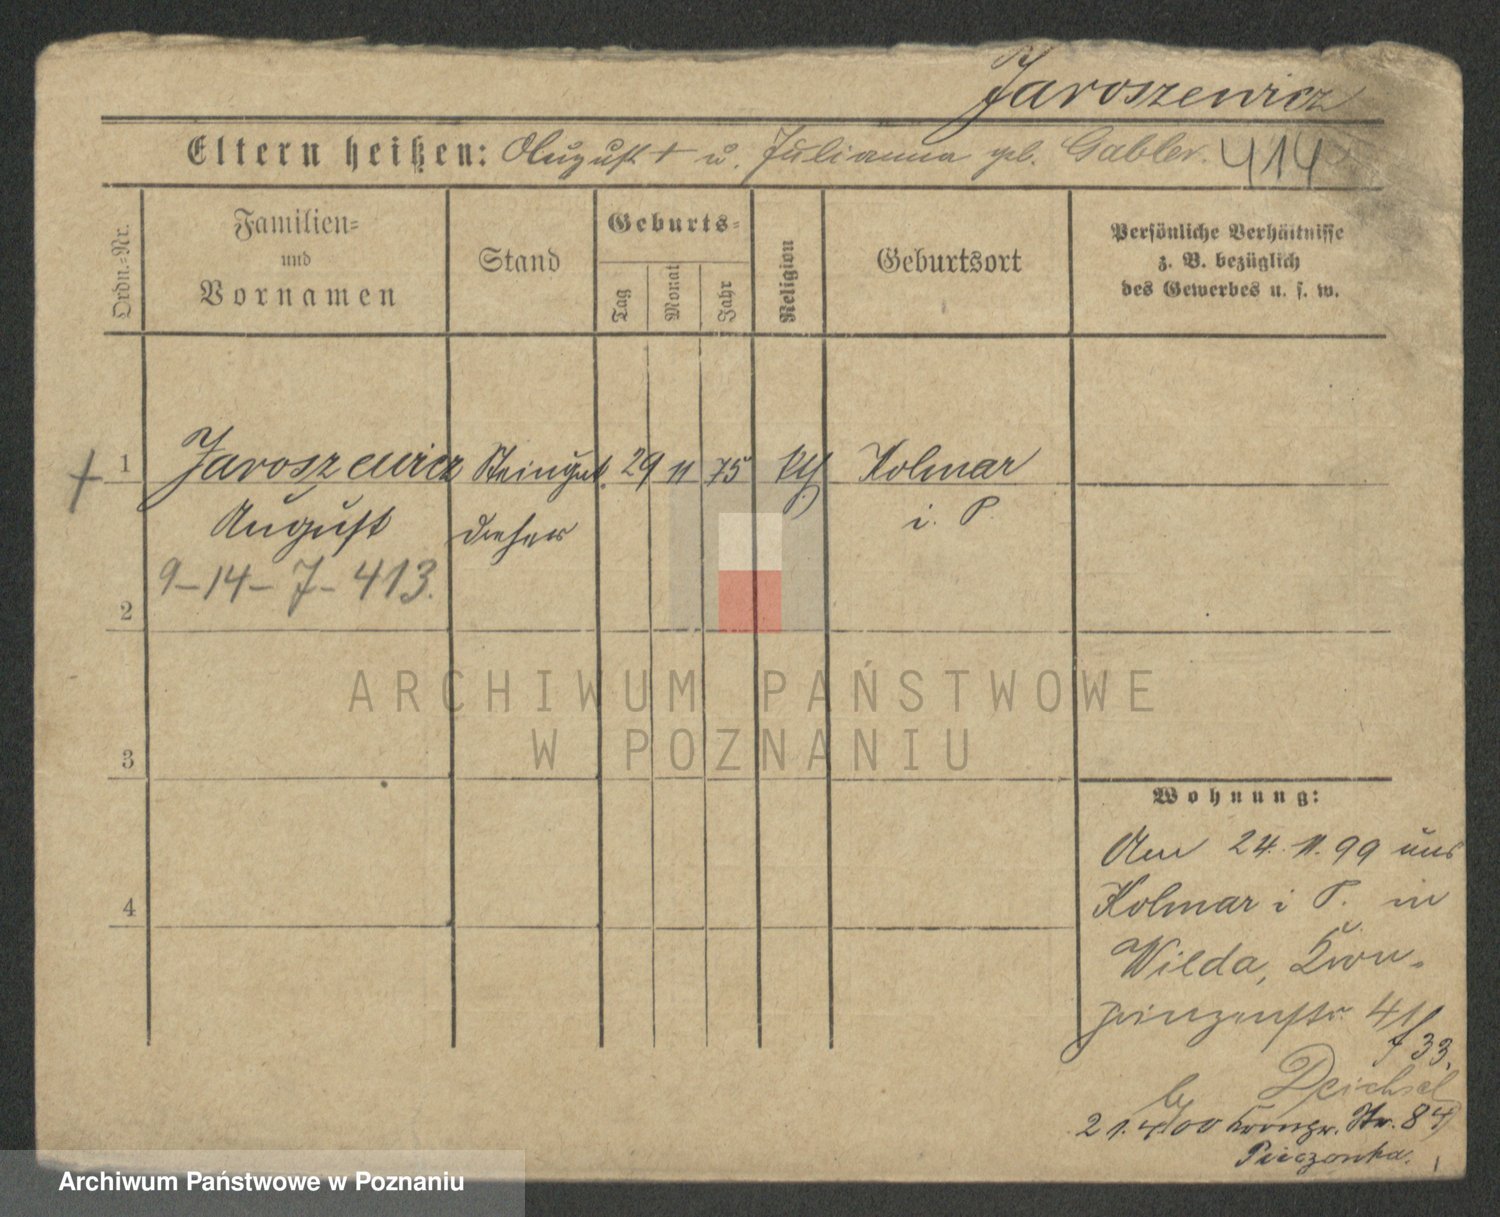 Jaroszewicz
Eltern heißen: August + u. Julianna geb. Gabler. 414
Ordn.-Nr.
Familien- und Vornamen
Stand
Geburts-
Tag
Monat
Jahr
Religion
Geburtsort
Persönliche Verhältnisse
z. B. bezüglich
des Gewerbes u. s. w.
+ 1 Jaroszewicz Steingut 29 11 75 kth Kolmar
August dreher i. P.
9-14-7-413.
2
ARCHIWUM PAŃSTWOWE
W POZNANIU
3
Wohnung:
Am 24. 11. 99 aus
Kolmar i P. in
4
Wilda, Kron-
prinzenstr. 41
f 33.
Deichsel
21.4.00 Kronpr. Str. 84
Pieczonka.
Archiwum Państwowe w Poznaniu